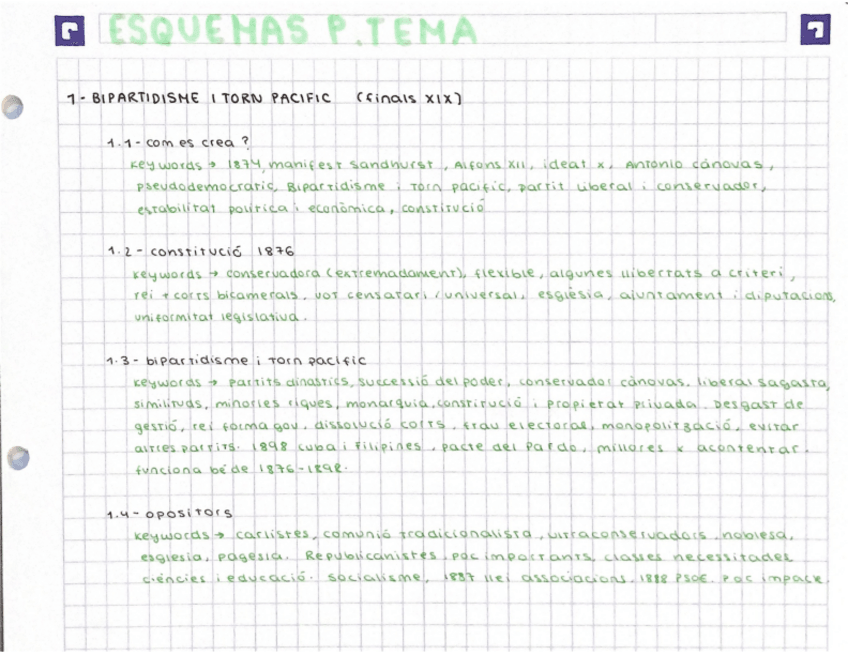 ESQUEMAS P.TEMA
1- BIPARTIDISME I TORN PACIFIC (finals XIX)
1.1- com es crea ?
keywords → 1874, manifest sandhurst, Alfons XII, ideat x, Antonio cánovas,
pseudodemocratic, Bipartidisme i Torn pacific, partit liberal i conservador,
estabilitat política i econòmica, constitució
1.2- constitució 1876
keywords → conservadora (extremadament), flexible, algunes llibertats a criteri,
rei + corts bicamerals, vot censatari / universal, església, ajuntament i diputacions,
uniformitat legislativa.
1.3- bipartidisme i torn pacific
keywords → partits dinastics, successió del poder, conservador cánovas, liberal sagasta,
similituds, minories riques, monarquia, constitució i propietat privada. Desgast de
gestió, rei forma gov, dissolució corts, frau electoral, monopolització, evitar
altres partits. 1898 cuba i Filipines, pacte del Pardo, millores x acontentar.
funciona bé de 1876-1898.
1.4- opositors
keywords → carlistes, comunió tradicionalista, ultraconservadors, noblesa,
església, pagesia. Republicanistes, poc importants, classes necessitades
ciències i educació. socialisme, 1887 llei associacions, 1888 PSOE. Poc impacte.